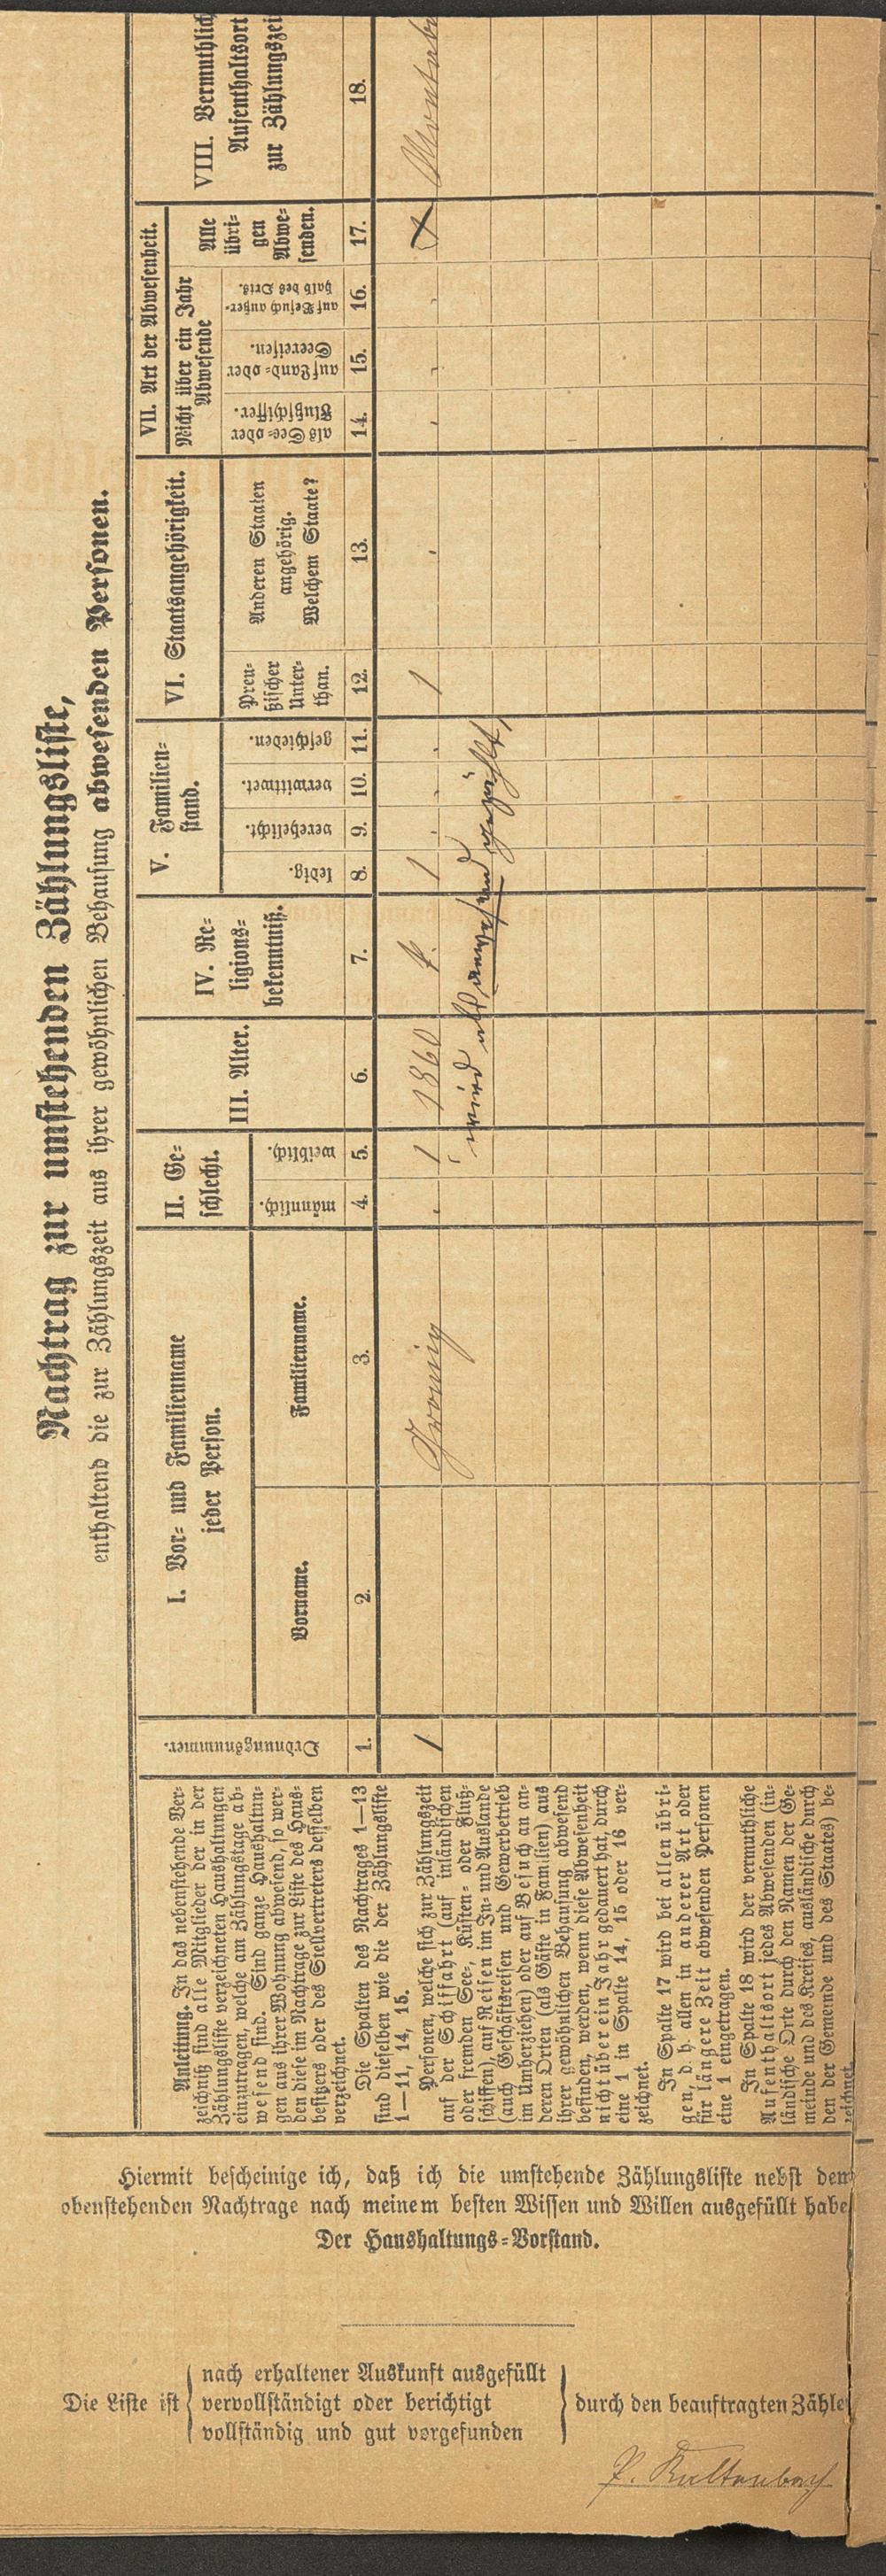 Nachtrag zur umstehenden Zählungsliste,
enthaltend die zur Zählungszeit aus ihrer gewöhnlichen Behausung abwesenden Personen.
Anleitung. In das nebenstehende Ver-
zeichniß sind alle Mitglieder der in der
Zählungsliste verzeichneten Haushaltungen
einzutragen, welche am Zählungstage ab-
wesend sind. Sind ganze Haushaltun-
gen aus ihrer Wohnung abwesend, so wer-
den diese im Nachtrage zur Liste des Haus-
besitzers oder des Stellvertreters desselben
verzeichnet.
Die Spalten des Nachtrages 1—13
sind dieselben wie die der Zählungsliste
1—11, 14, 15.
Personen, welche sich zur Zählungszeit
auf der Schiffahrt (auf inländischen
oder fremden See-, Küsten- oder Fluß-
schiffen), auf Reisen im In- und Auslande
(auch Geschäftsreisen und Gewerbetrieb
im Umherziehen) oder auf Besuch an an-
deren Orten (als Gäste in Familien) aus
ihrer gewöhnlichen Behausung abwesend
befinden, werden, wenn diese Abwesenheit
nicht über ein Jahr gedauert hat, durch
eine 1 in Spalte 14, 15 oder 16 ver-
zeichnet.
In Spalte 17 wird bei allen übri-
gen, d. h. allen in anderer Art oder
für längere Zeit abwesenden Personen
eine 1 eingetragen.
In Spalte 18 wird der vermuthliche
Aufenthaltsort jedes Abwesenden (in-
ländische Orte durch den Namen der Ge-
meinde und des Kreises, ausländische durch
den der Gemeinde und des Staates) be-
zeichnet.
Ordnungsnummer.
I. Vor- und Familienname
jeder Person.
Vorname.
Familienname.
II. Ge-
schlecht.
männlich.
weiblich.
III. Alter.
IV. Re-
ligions-
bekenntniß.
V. Familien-
stand.
ledig.
verehelicht.
verwittwet.
geschieden.
VI. Staatsangehörigkeit.
Preu-
ßischer
Unter-
than.
Anderen Staaten
angehörig.
Welchem Staate?
VII. Art der Abwesenheit.
Nicht über ein Jahr
Abwesende
als See- oder
Flußschiffer.
auf Land- oder
Seereisen.
auf Besuch außer-
halb des Orts.
Alle
übri-
gen
Abwe-
senden.
VIII. Vermuthlich
Aufenthaltsort
zur Zählungszei
1. 2. 3. 4. 5. 6. 7. 8. 9. 10. 11. 12. 13. 14. 15. 16. 17. 18.
1 Gronig 1 1860 k. 1 1 Montab
wird als anwesend gezählt,
Hiermit bescheinige ich, daß ich die umstehende Zählungsliste nebst dem
obenstehenden Nachtrage nach meinem besten Wissen und Willen ausgefüllt habe
Der Haushaltungs-Vorstand.
Die Liste ist
nach erhaltener Auskunft ausgefüllt
vervollständigt oder berichtigt
vollständig und gut vorgefunden
durch den beauftragten Zähle
P. Kaltenbach